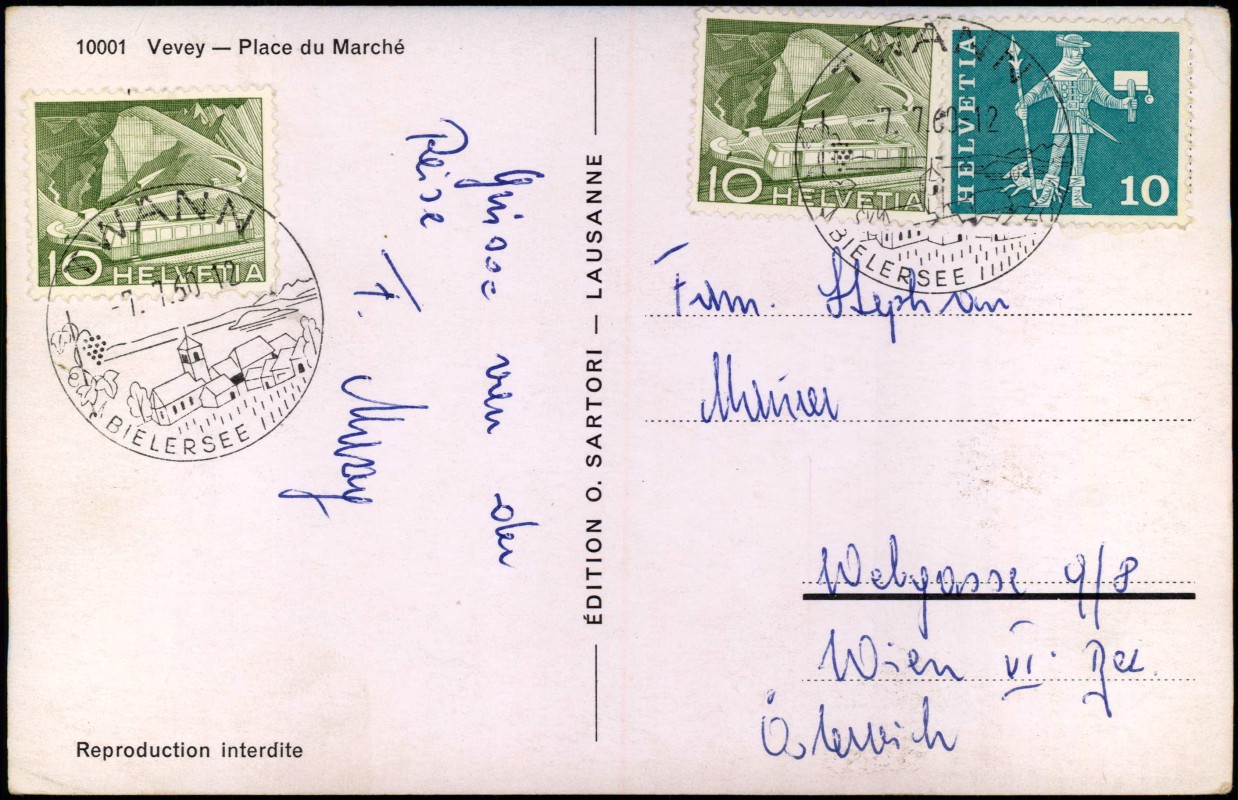 10001 Vevey — Place du Marché
10 HELVETIA
TWANN
-7. 7.60 12
BIELERSEE
Grüsse von der
Reise
F.
ÉDITION O. SARTORI — LAUSANNE
10 HELVETIA
HELVETIA 10
TWANN
-7. 7.60 12
BIELERSEE
Fam. Stephan
Webgasse 9/8
Wien VI. Bez.
Österreich
Reproduction interdite